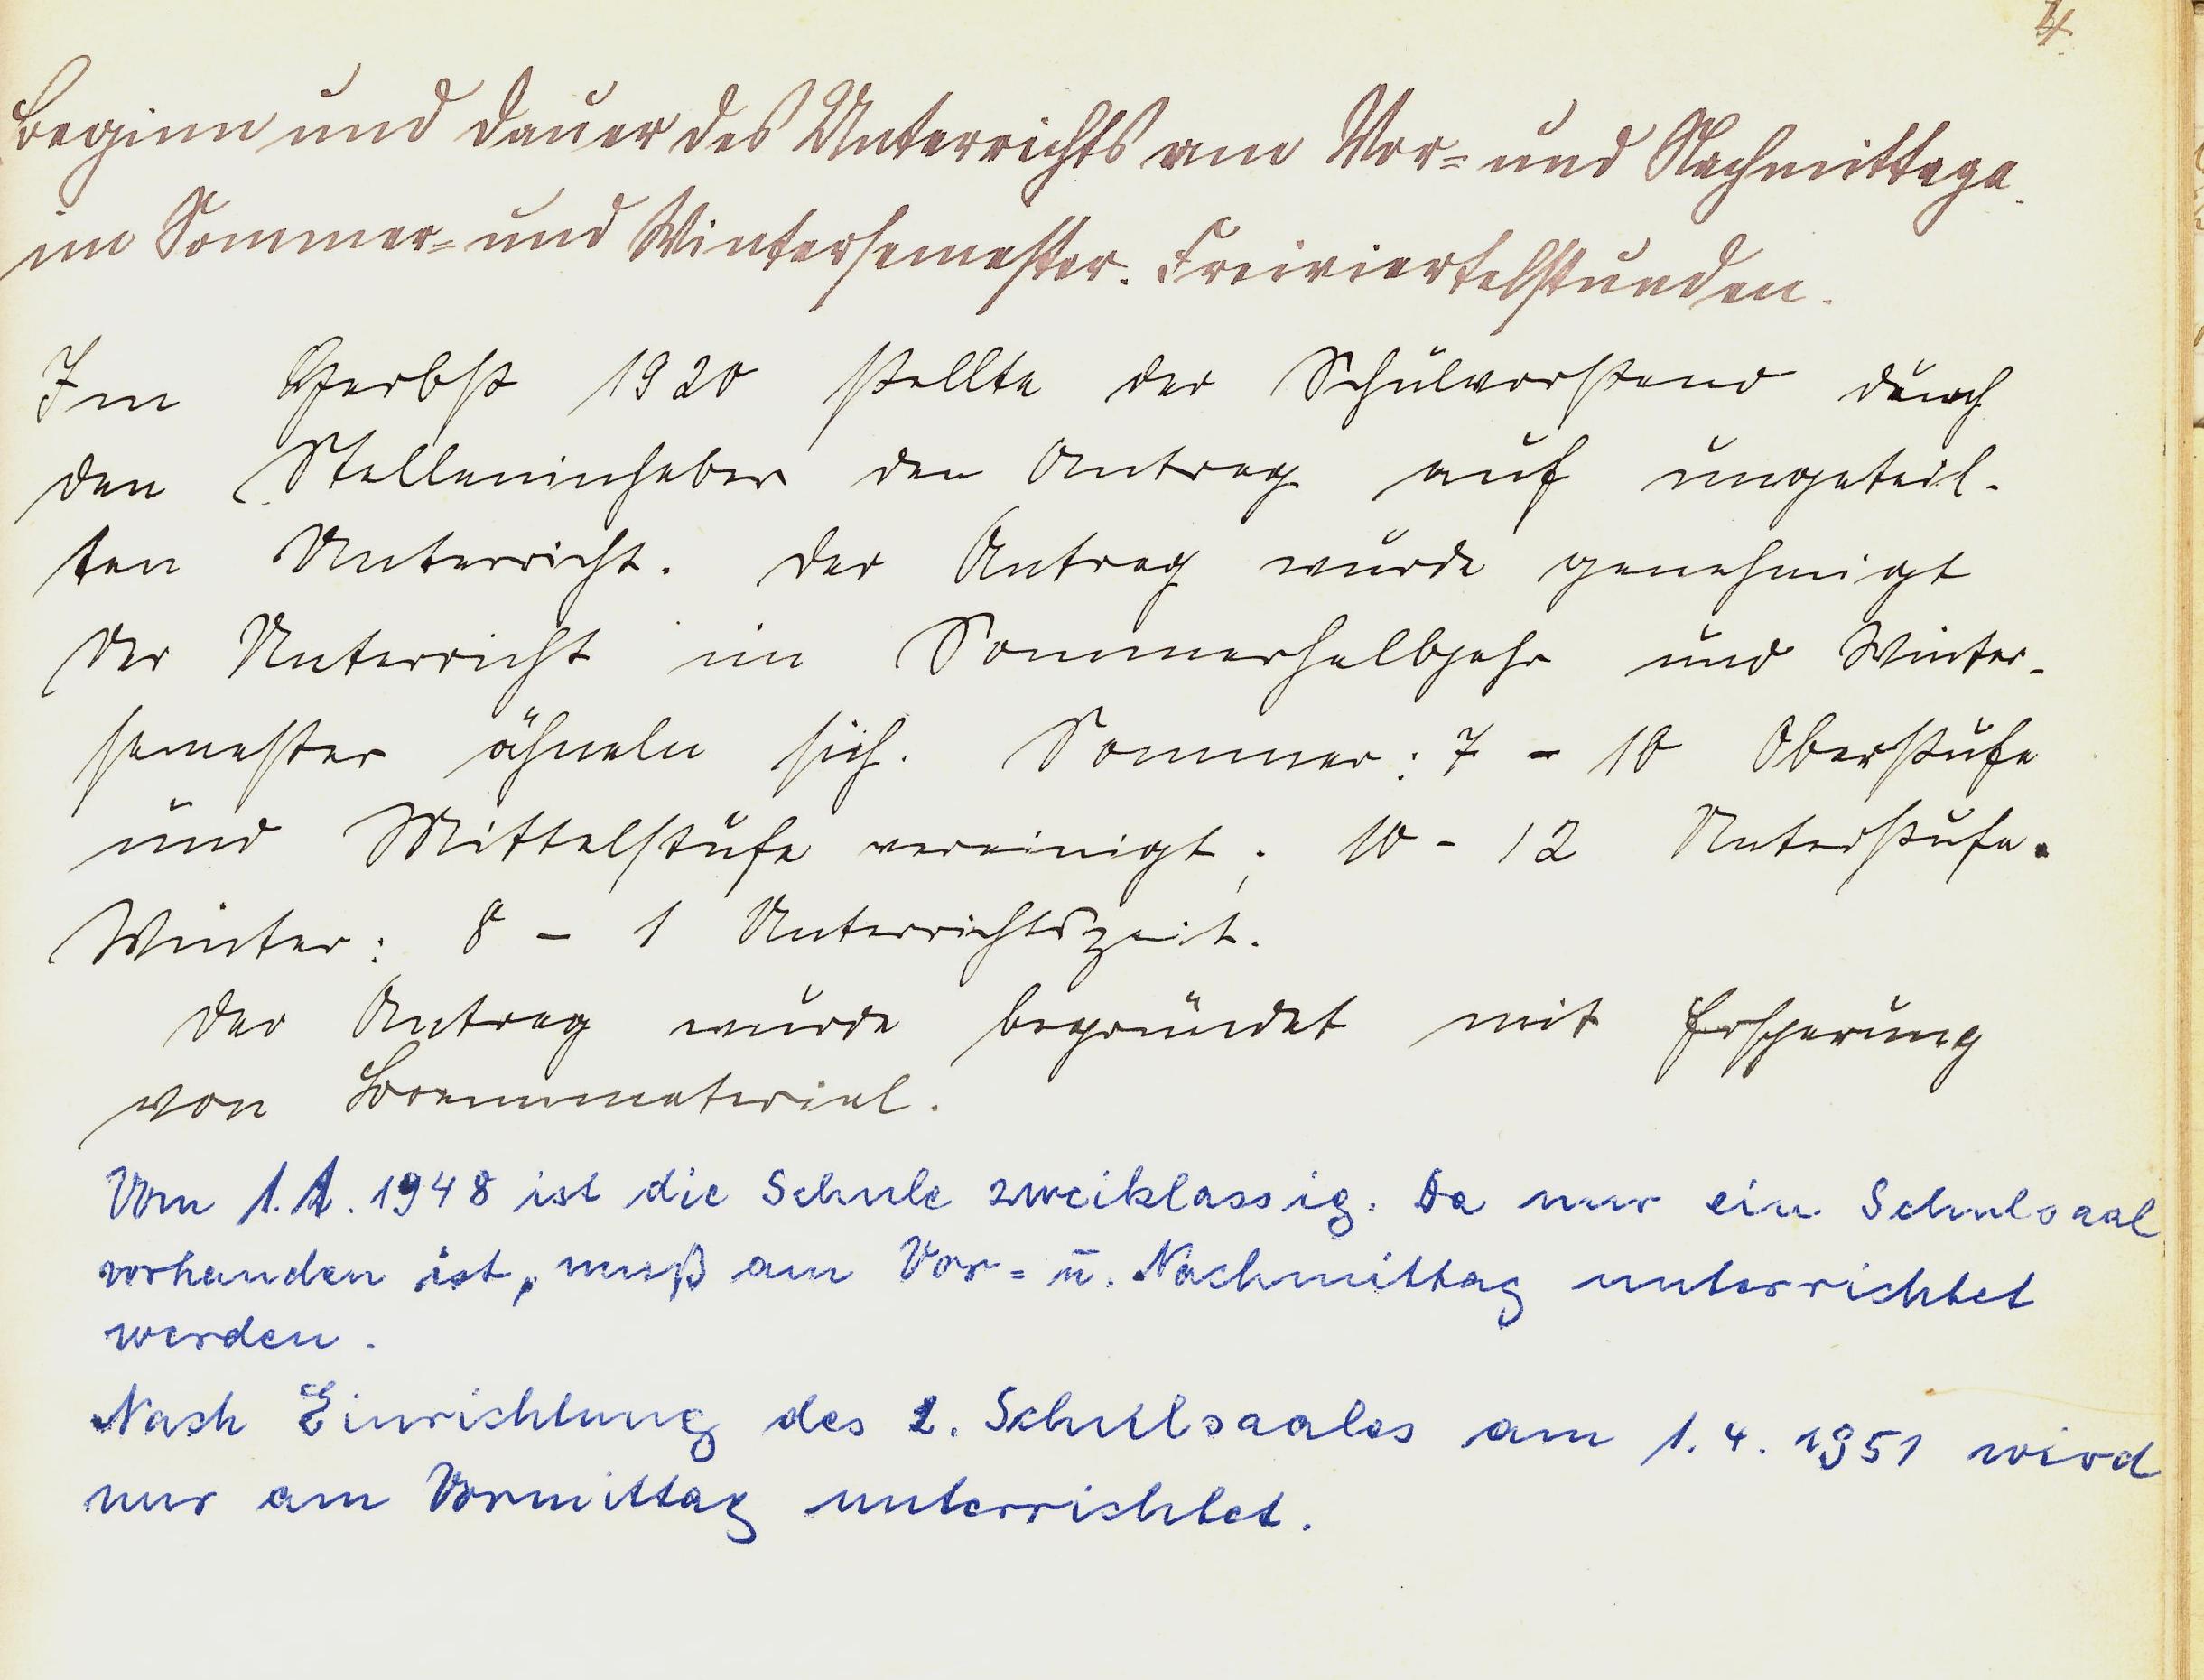 4
Beginn und Dauer des Unterrichts am Vor= und Nachmittage
im Sommer= und Wintersemester. Freiviertelstunden.
Im Herbst 1920 stellte der Schulvorstand durch
den Stelleninhaber den Antrag auf ungeteil-
ten Unterricht. Der Antrag wurde genehmigt
Der Unterricht im Sommerhalbjahr und Winter-
semester ähneln sich. Sommer: 7 - 10 Oberstufe
und Mittelstufe vereinigt; 10 - 12 Unterstufe.
Winter: 8 - 1 Unterrichtszeit.
Der Antrag wurde begründet mit Ersparung
von Brennmaterial.
Vom 1.1.1948 ist die Schule zweiklassig. Da nur ein Schulsaal
vorhanden ist, muß am Vor= u. Nachmittag unterrichtet
werden.
Nach Einrichtung des 2. Schulsaales am 1.4.1951 wird
nur am Vormittag unterrichtet.